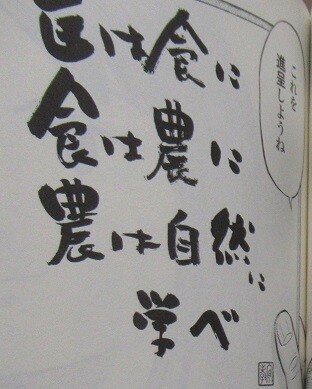 医は食に
食は農に
農は自然に
学べ
これを
進呈しようね